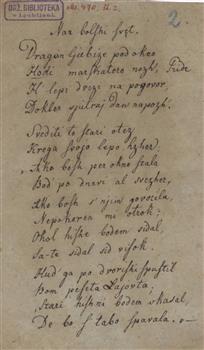 DRŽ. BIBLIOTEKA
v Ljubljani.
2.
Nar bolshi svet.
Dragan ljubize pod okno
Hodi marskatero nozh, Pride
K' lepi dorze na pogovor
Dokler sjutraj dan napozh.
Svediti to stari otez
Krega svojo lepo hzher:
Ako besh per okno stala
Bod' po dnevi al svezher,
Ako bosh s' njim govorila,
Nepokoren mi otrok:
Okol hishe bodem sidal,
Sa-te sidal sid visok
Hud ga po dvorishi spustil
Bom pesela Lajovta,
Stari hishni bodem vkasal,
De bo s' tabo spavala.